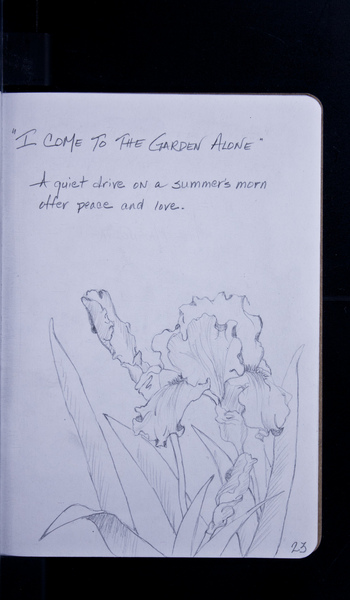 "I COME TO THE GARDEN ALONE"
A quiet drive on a summers morn
offer peace and love.
23